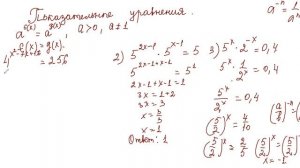 Показательное уравнения.
a^{f(x)} = a^{g(x)}, a>0, a≠1
f(x) = g(x).
a^{-n} = \frac{1}{a^n}
2) 5^{2x-1} · 5^{x-1} = 5
5^{2x-1+x-1} = 5^1
2x-1+x-1=1
3x = 1+2
3x = 3
x = \frac{3}{3}
x = 1
Ответ: 1
3) 5^x · 2^{-x} = 0,4
5^x · \frac{1}{2^x} = 0,4
\frac{5^x}{2^x} = 0,4
(\frac{5}{2})^x = \frac{4}{10}
(\frac{5}{2})^x = \frac{2}{5}
(\frac{5}{2})^x = (\frac{5}{2})^{-1}
x = -1